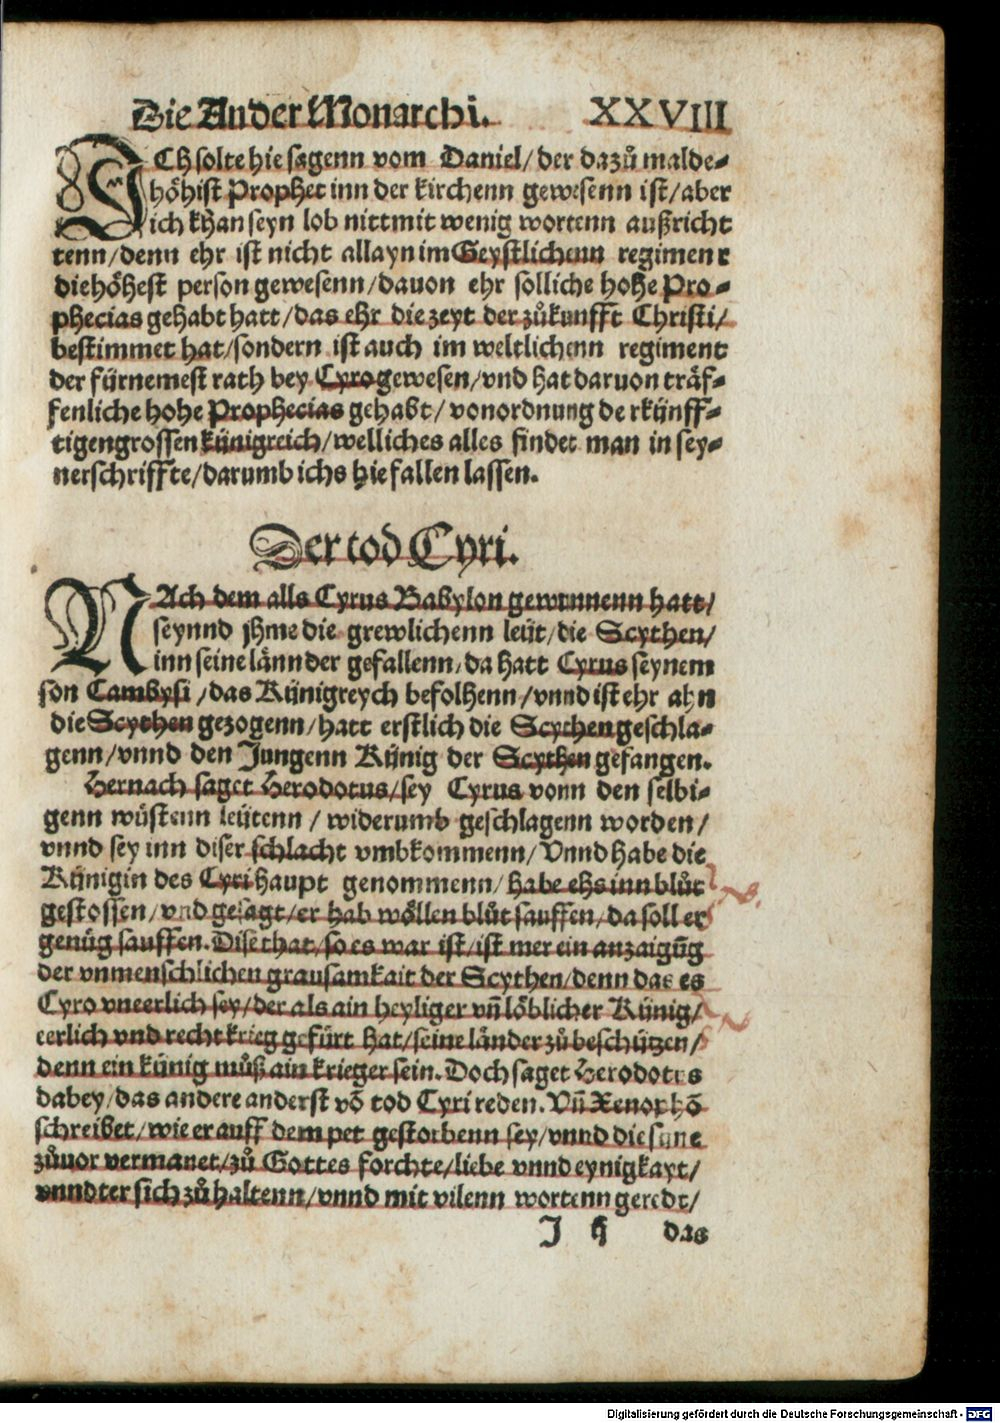 Die Ander Monarchi. XXVIII
ICH solte hie sagenn vom Daniel/ der dazů malde-
höhist Prophet inn der kirchenn gewesenn ist/ aber
ich khan seyn lob nitt mit wenig wortenn außricht
tenn/ denn ehr ist nicht allayn im Geystlichenn regiment
die höhest person gewesenn/ dauon ehr solliche hohe Pro-
phecias gehabt hatt/ das ehr die zeyt der zůkunfft Christi/
bestimmet hat/ sondern ist auch im weltlichenn regiment
der fürnemest rath bey Cyro gewesen/ vnd hat daruon träf-
fenliche hohe Prophecias gehabt/ von ordnung de rkünff-
tigen grossen künigreich/ welliches alles findet man in sey-
ner schriffte/ darumb ichs hie fallen lassen.
Der tod Cyri.
NAch dem alls Cyrus Babylon gewunnenn hatt/
seynnd jhme die grewlichenn leüt/ die Scythen/
inn seine lännder gefallenn/ da hatt Cyrus seynem
son Cambysi/ das Künigreych befolhenn/ vnnd ist ehr ahn
die Scythen gezogenn/ hatt erstlich die Scythen geschla-
genn/ vnnd den Jungenn Künig der Scythen gefangen.
Hernach saget Herodotus/ sey Cyrus vonn den selbi-
genn wüstenn leütenn/ widerumb geschlagenn worden/
vnnd sey inn diser schlacht vmbkommenn/ Vnnd habe die
Künigin des Cyri haupt genommenn/ habe ehs inn blůt
gestossen/ vnd gesagt/ er hab wöllen blůt sauffen/ da soll er
genůg sauffen. Dise that/ so es war ist/ ist mer ein anzaigũg
der vnmenschlichen grausamkait der Scythen/ denn das es
Cyro vneerlich sey/ der als ain heyliger vñ löblicher Künig/
eerlich vnd recht krieg gefürt hat/ seine länder zů beschützen/
denn ein künig můß ain krieger sein. Doch saget Herodotus
dabey/ das andere anderst võ tod Cyri reden. Vñ Xenophõ
schreibet/ wie er auff dem pet gestorbenn sey/ vnnd die süne
zůuor vermanet/ zů Gottes forchte/ liebe vnnd eynigkayt/
vnndter sich zů haltenn/ vnnd mit vilenn wortenn geredt/
J ij das
Digitalisierung gefördert durch die Deutsche Forschungsgemeinschaft - DFG